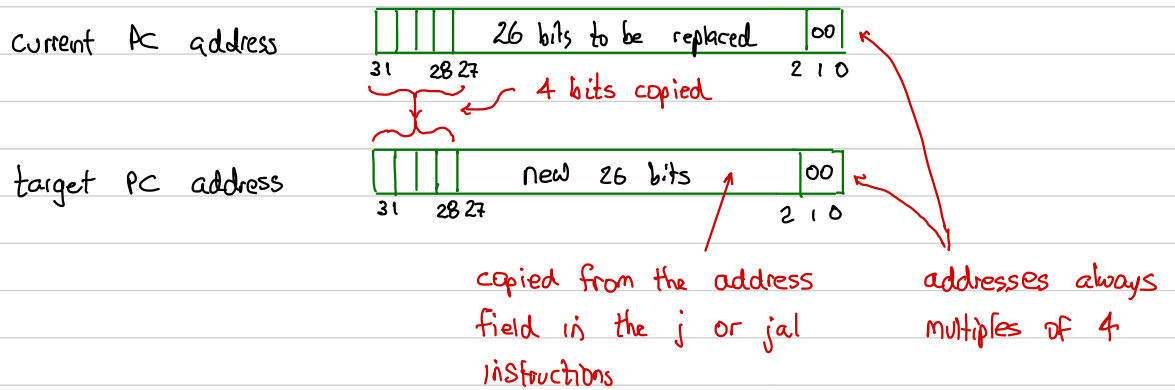 current PC address
26 bits to be replaced
00
31 28 27 2 1 0
4 bits copied
target PC address
new 26 bits
00
31 28 27 2 1 0
copied from the address
field in the j or jal
instructions
addresses always
multiples of 4